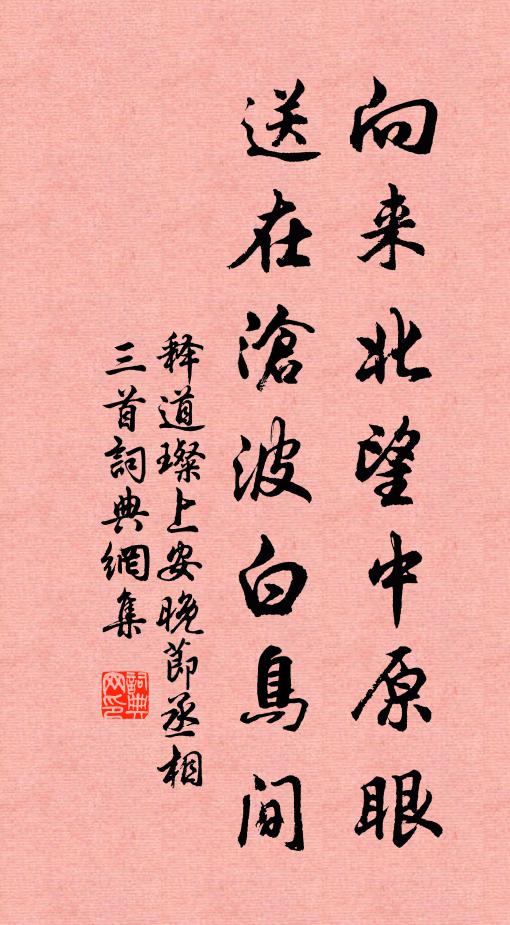 向来北望中原眼
送在滄波白鳥间
释道璨上安晚節丞相
三首詞典網集
詞典
网印